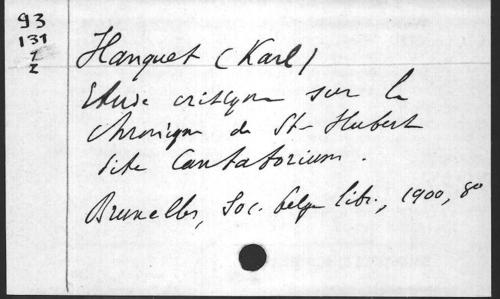 93
131
1
2
Hanquet (Karl)
Etude critique sur la
Chronique de St-Hubert
dite Cantatorium.
Bruxelles, Soc. belge libr., 1900, 8o